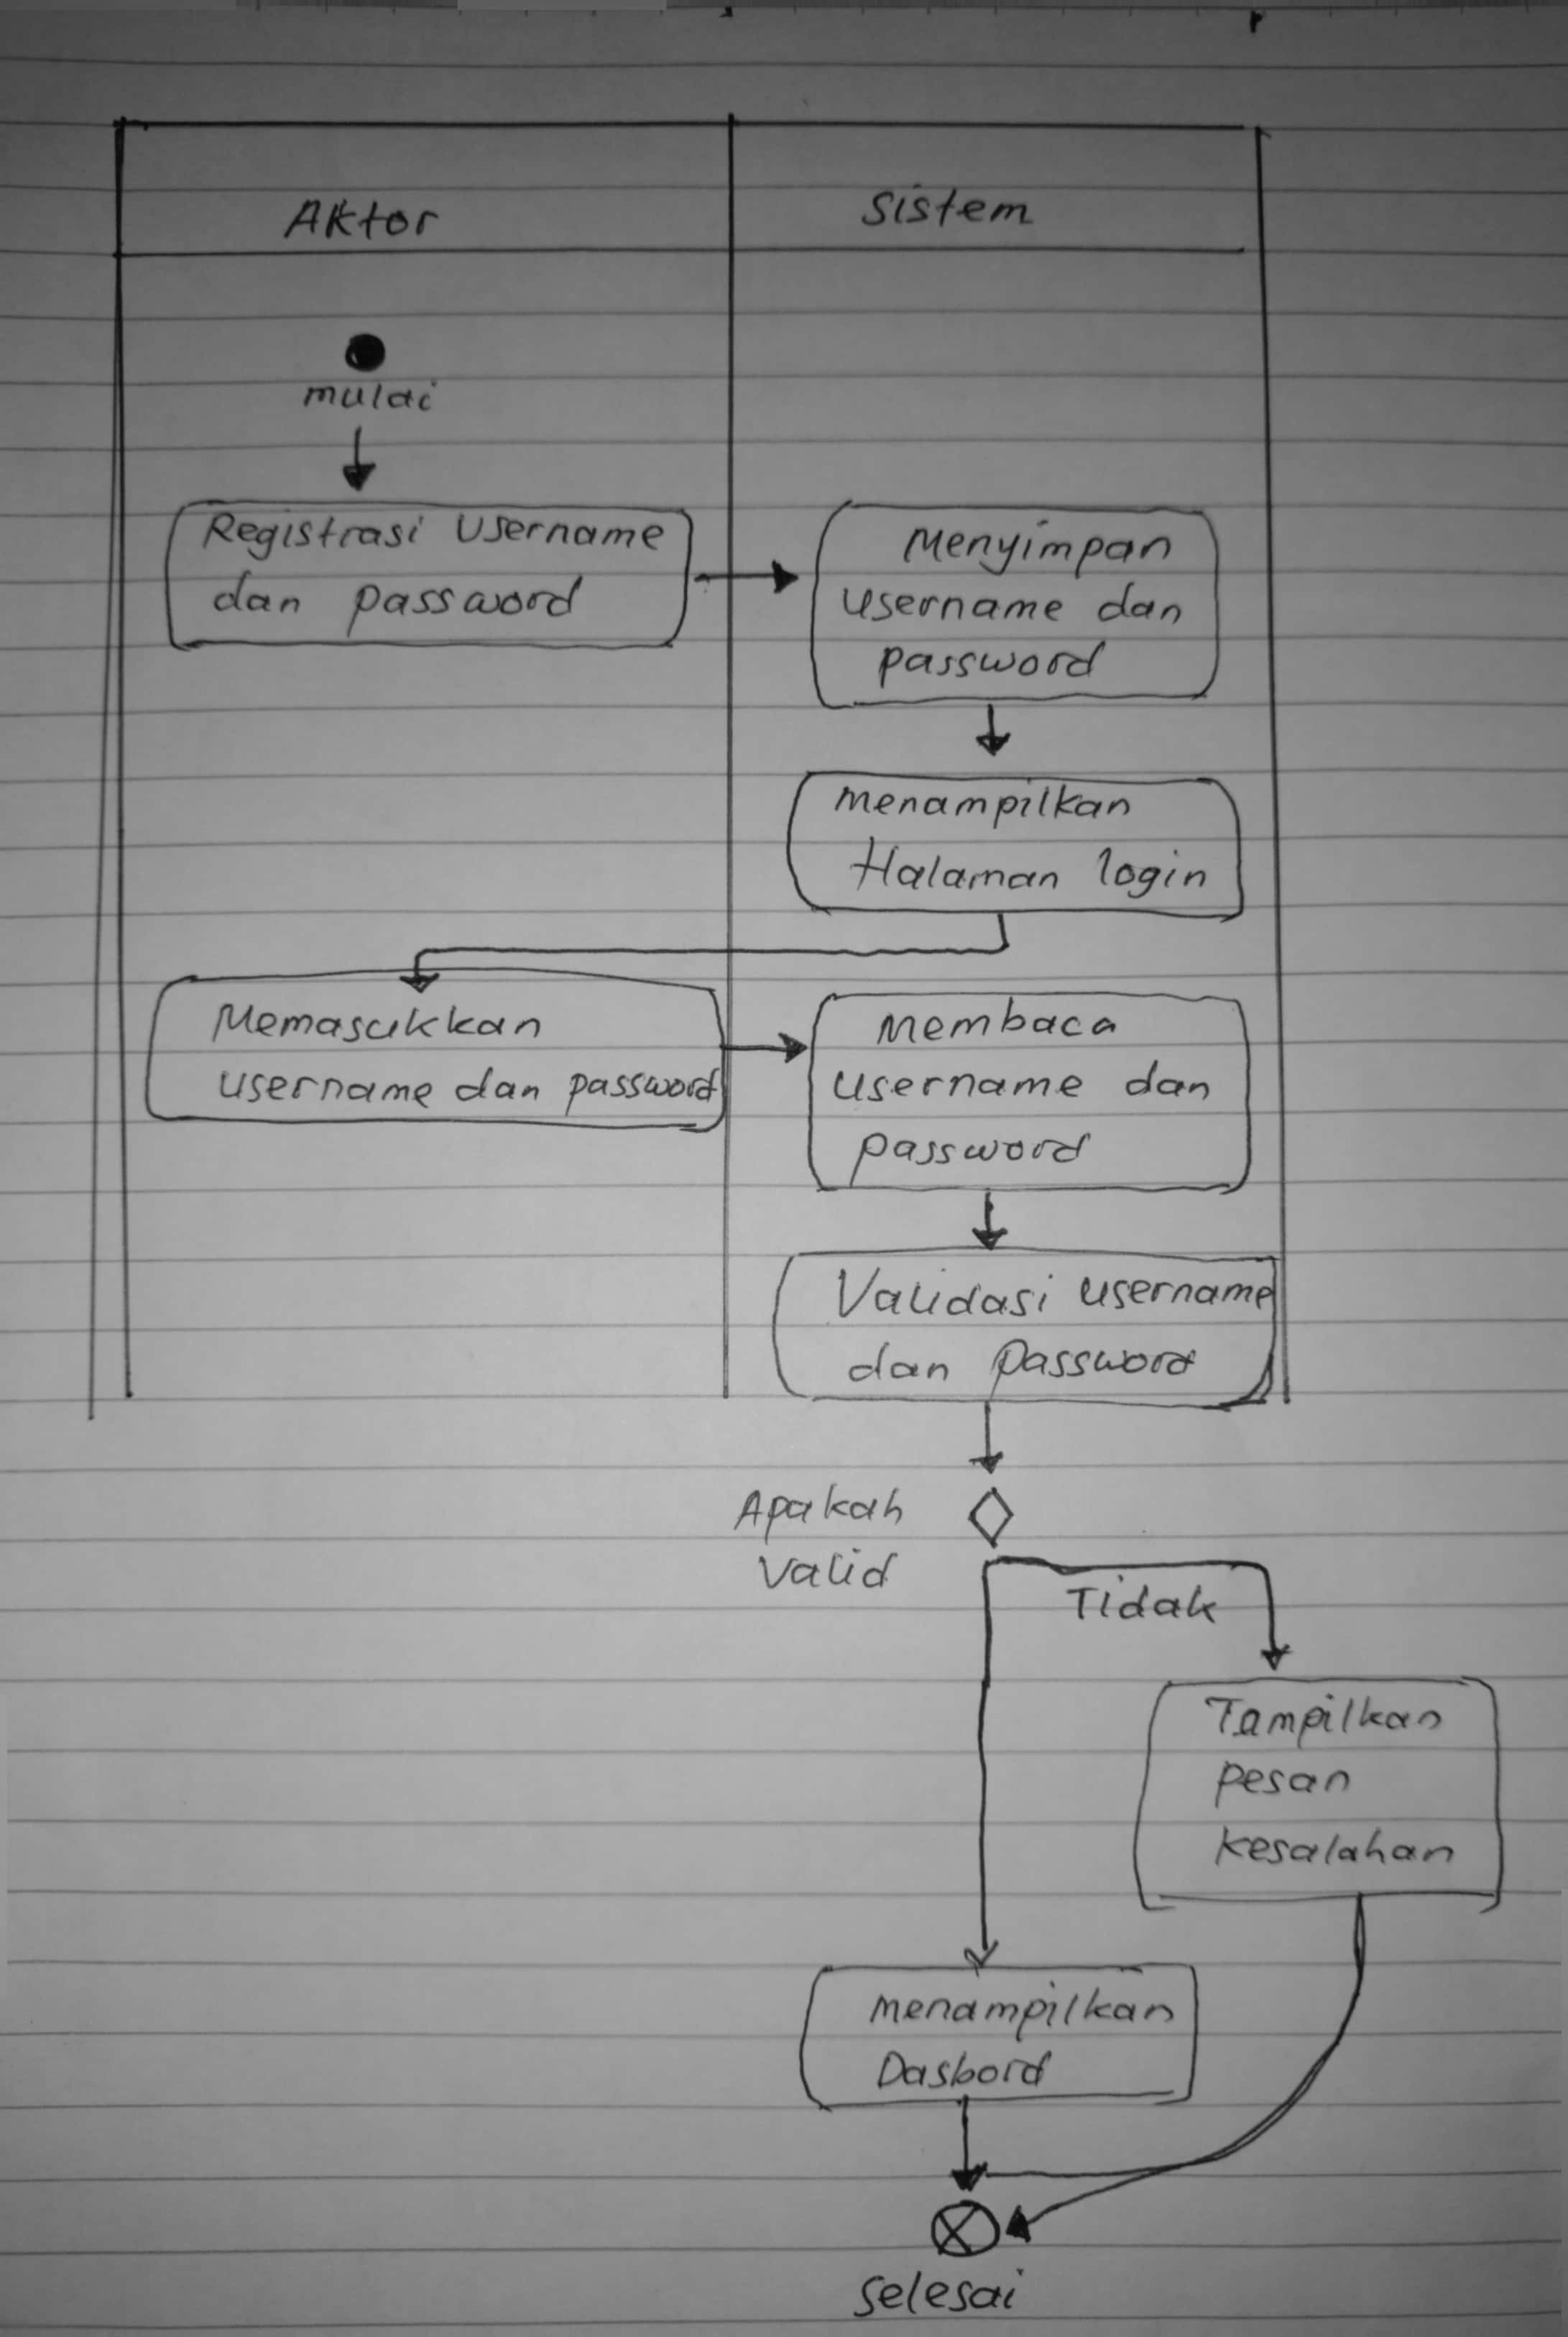 Aktor
Sistem
mulai
Registrasi Username
dan password
Menyimpan
username dan
password
menampilkan
Halaman login
Memasukkan
username dan password
Membaca
username dan
password
Validasi username
dan password
Apakah
valid
Tidak
Tampilkan
pesan
kesalahan
menampilkan
Dasbord
selesai